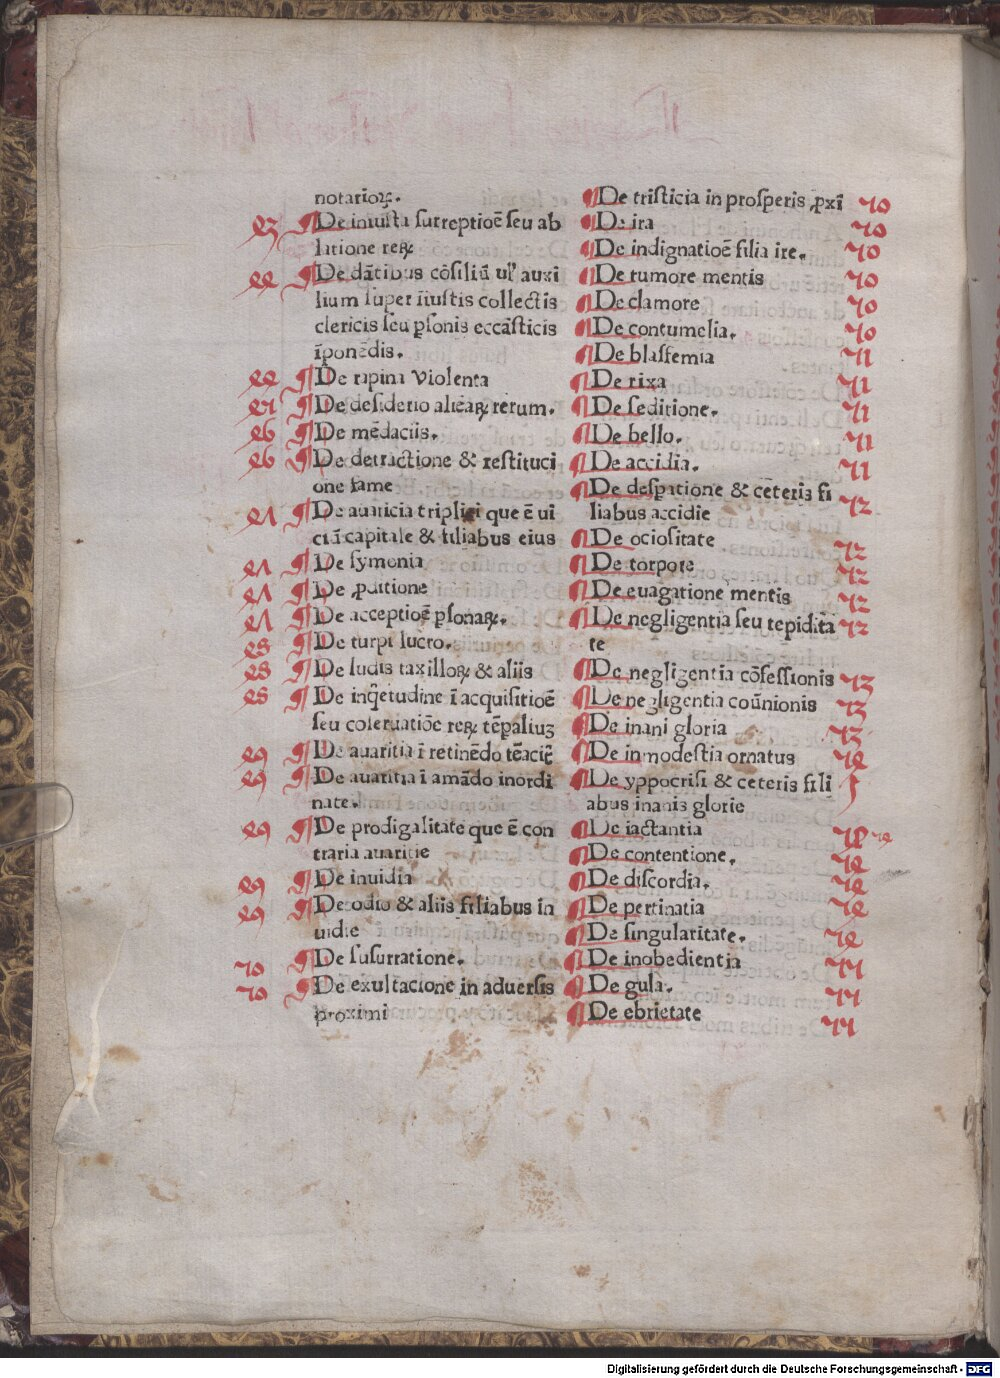 notarioꝝ.
63 De iniusta surreptioē seu ab
latione reꝝ
64 De dātibus cōsiliū uꝉ auxi
lium super iiustis collectis
clericis seu ꝑsonis ecclāsticis
īponēdis.
64 De rapina violenta
65 De desiderio aliēaꝝ rerum.
66 De mēdaciis.
66 De detractione & restituci
one fame
67 De auaricia triplici que ē ui
ciū capitale & filiabus eius
67 De symonia
67 De ꝓditione
67 De acceptioē ꝑsonaꝝ.
68 De turpi lucro.
68 De ludis taxilloꝝ & aliis
68 De inqetudine ī acquisitioē
seu coseruatiōe reꝝ tēpaliuꝫ
69 De auaritia ī retinēdo tēacit̄
69 De auaritia ī amādo inordi
nate.
69 De prodigalitate que ē con
traria auaritie
69 De inuidia
69 De odio & aliis filiabus in
uidie
70 De susurratione.
70 De exultacione in aduersis
proximi
De tristicia in prosperis ꝓxī 70
De ira 70
De indignatioē filia ire. 70
De tumore mentis 70
De clamore 70
De contumelia. 70
De blasfemia 71
De rixa 71
De seditione. 71
De bello. 71
De accidia. 71
De despatione & ceteris fi 72
liabus accidie
De ociositate 72
De torpore 72
De euagatione mentis 72
De negligentia seu tepidita 72
te
De negligentia cōfessionis 73
De negligentia coūnionis 73
De inani gloria 73
De inmodestia ornatus 74
De yppocrisi & ceteris fili
abus inanis glorie
De iactantia 74
De contentione. 74
De discordia. 74
De pertinatia 74
De singularitate. 74
De inobedientia 77
De gula. 77
De ebrietate 77
Digitalisierung gefördert durch die Deutsche Forschungsgemeinschaft - DFG